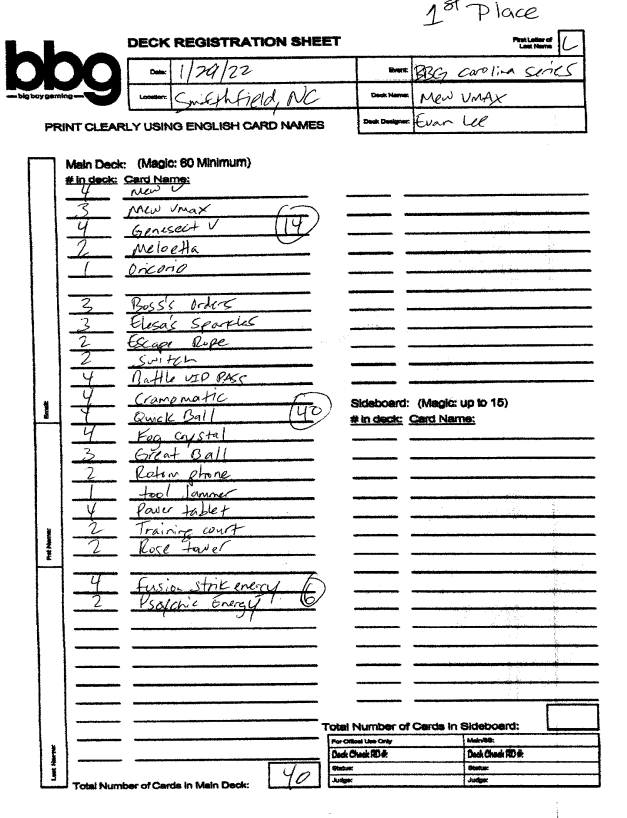 1st Place
bbg
big boy gaming
DECK REGISTRATION SHEET
First Letter of Last Name L
Date: 1/29/22
Event: BBG Carolina Series
Location: Smifthfield, NC
Deck Name: Mew VMAX
PRINT CLEARLY USING ENGLISH CARD NAMES
Deck Designer: Evan Lee
Main Deck: (Magic: 60 Minimum)
# in deck: Card Name:
4 Mew V
3 Mew Vmax
4 Genesect V 14
2 Meloetta
1 Oricorio
3 Boss's Orders
3 Elesa's Sparkles
2 Escape Rope
2 Switch
4 Battle VIP PASS
4 Crampmatic
4 Quick Ball 40
4 Fog crystal
3 Great Ball
2 Rotom phone
1 tool Jammer
4 Power tablet
2 Training court
2 Rose tower
4 Fusion strik energy 6
2 Psychic Energy
Sideboard: (Magic: up to 15)
# in deck: Card Name:
Email:
First Name:
Last Name:
Total Number of Cards in Sideboard:
For Official Use Only Main/SB:
Deck Check RD #: Deck Check RD #:
Status: Status:
Judge: Judge:
Total Number of Cards in Main Deck: 40